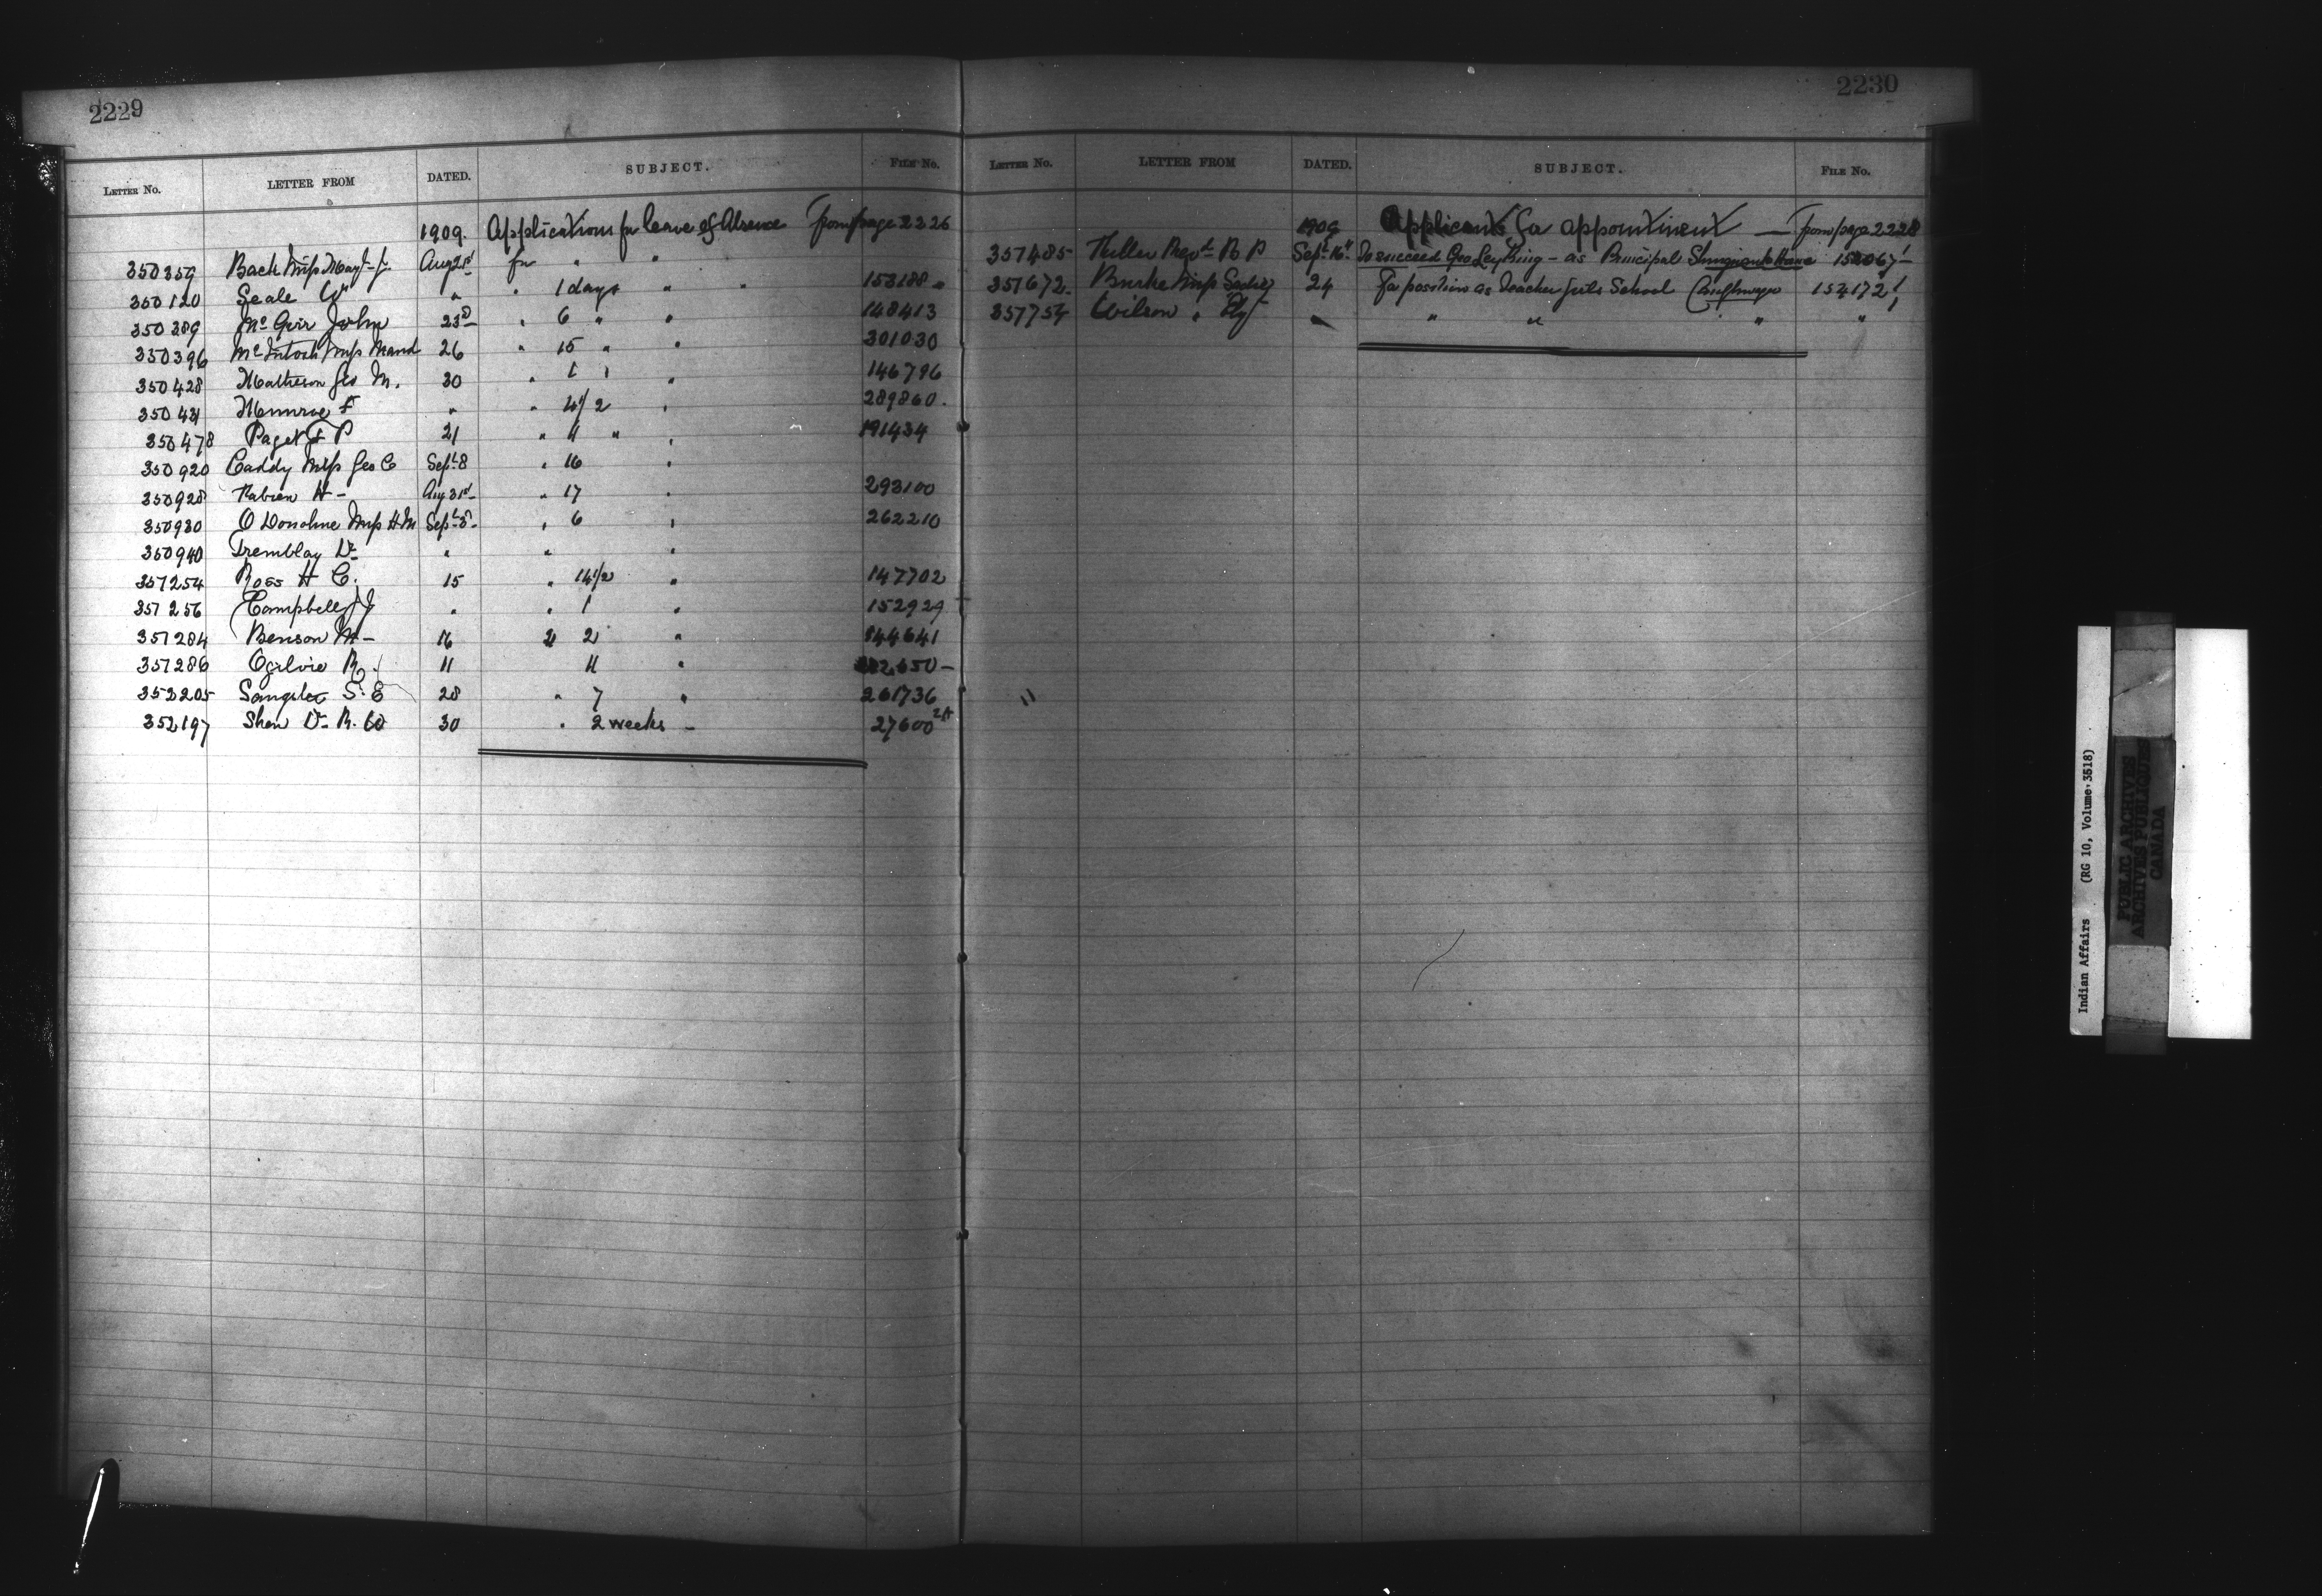 2229
LETTER NO. LETTER FROM DATED. SUBJECT. FILE NO.
1909. Applications for leave of Absence From page 2226
350359 Back Miss May Aug 21st for " "
350120 Seale W " " 1 days " " 153180 "
350389 McGeir John 23d " 6 " " 148413
350396 McIntosh Miss Maud 26 " 15 " " 301030
350428 Matheson Geo M. 30 " 1 " " 146796
350431 Munroe F " " 4 1/2 " 289860.
350478 Paget F P 21 " 4 " " 191434
350920 Caddy Miss Geo C Sept 8 " 16 "
350928 Fabien H - Aug 31st " 17 " 293100
350930 O Donohue Miss H M Sept 8 " 6 " 262210
350940 Tremblay Dr " " "
351254 Ross H C. 15 " 14 1/2 " 147702
351256 Campbell J J " " 1 " 152929
351284 Benson M - 16 " 2 " 144641
351286 Ogilvie R. 11 4 "
352205 Sangster S. E 28 " 7 " 261736
352197 Shaw Dr R. W 30 " 2 weeks - 27600 2A
2230
LETTER NO. LETTER FROM DATED. SUBJECT. FILE NO.
1909 Applicants for appointment — From page 2228
357485 Fuller Revd B P Sept 16th To succeed Geo Ley King - as Principal Shingwauk Home
351672. Burke Miss Sadie 24 For position as Teacher Girls School Caughnawaga 154172 1/1
357754 Wilson " " " " " "
"
Indian Affairs (RG 10, Volume 3518)
PUBLIC ARCHIVES
ARCHIVES PUBLIQUES
CANADA